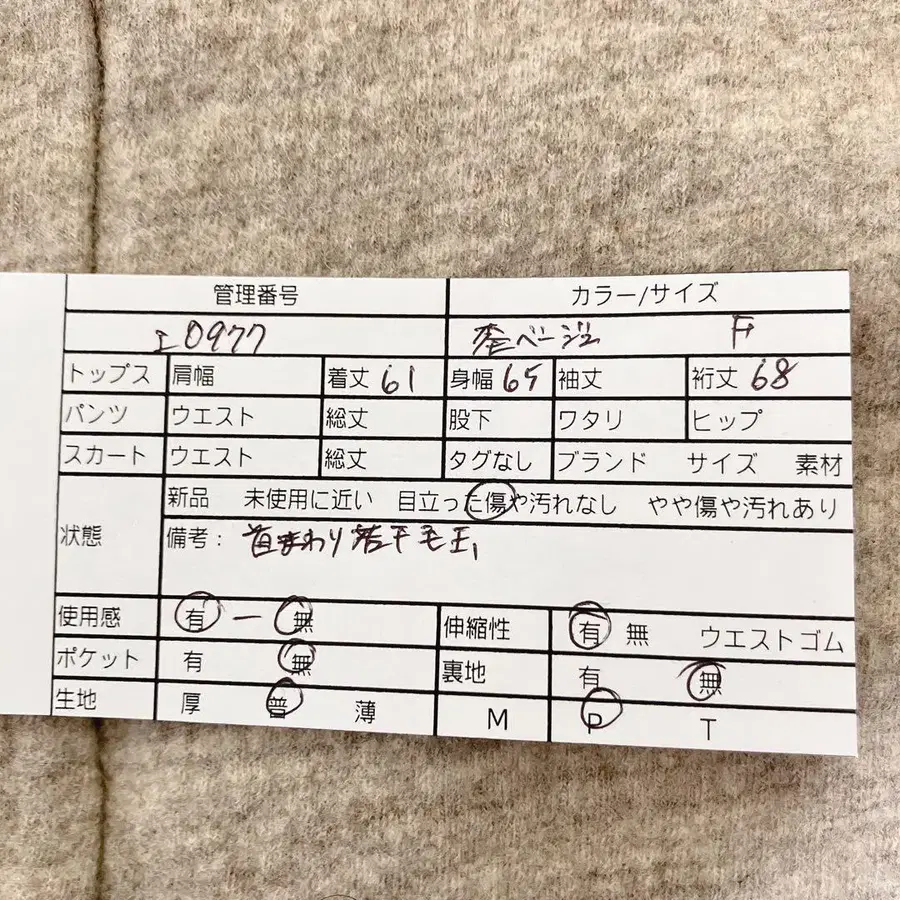 管理番号 カラー/サイズ
I0977 杢ベージュ F
トップス 肩幅 着丈 61 身幅 65 袖丈 裄丈 68
パンツ ウエスト 総丈 股下 ワタリ ヒップ
スカート ウエスト 総丈 タグなし ブランド サイズ 素材
新品 未使用に近い 目立った傷や汚れなし やや傷や汚れあり
状態 備考: 首まわり若干毛玉
使用感 有 ー 無 伸縮性 有 無 ウエストゴム
ポケット 有 無 裏地 有 無
生地 厚 普 薄 M P T